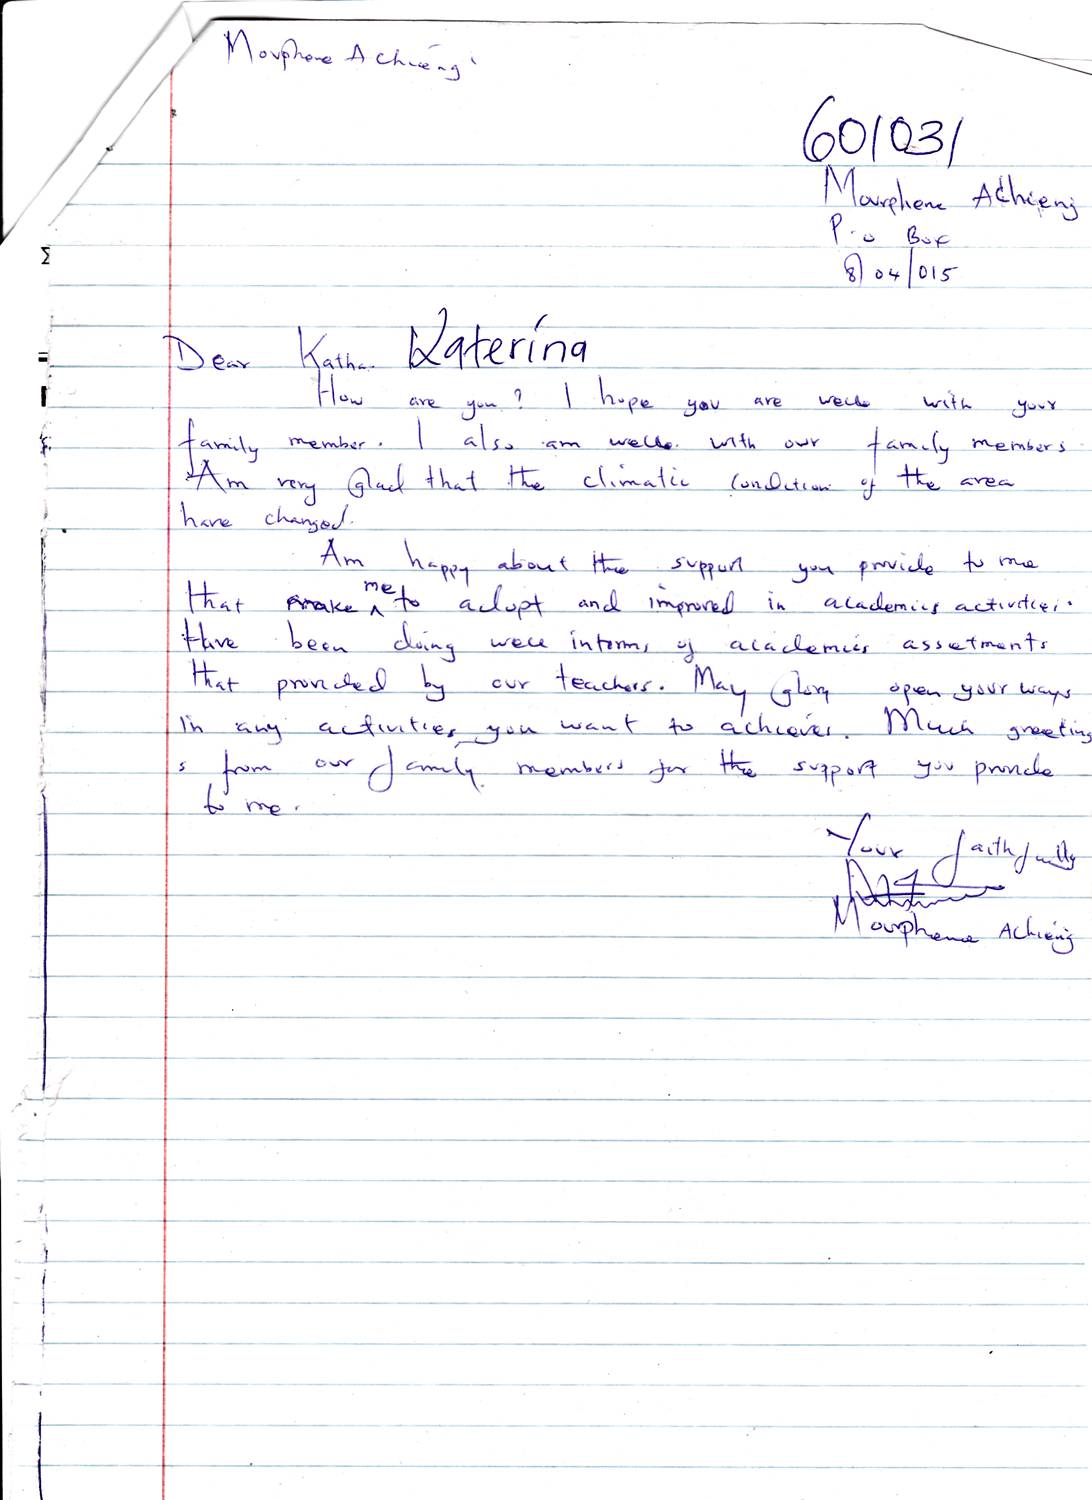 Mourphene Achieng
601031
Mourphene Achieng
P.o Box
8/04/015
Dear Katha. Katerina
How are you? I hope you are well with your
family member. I also am well with our family members
Am very Glad that the climatic condition of the area
have changed.
Am happy about the support you provide to me
that make me to adopt and improved in academics activities.
Have been doing well interms of academics assetments
that provided by our teachers. May Glory open your ways
in any activities you want to achieves. Much greeting
s from our family members for the support you provide
to me.
Your faithfully
Mourphene Achieng